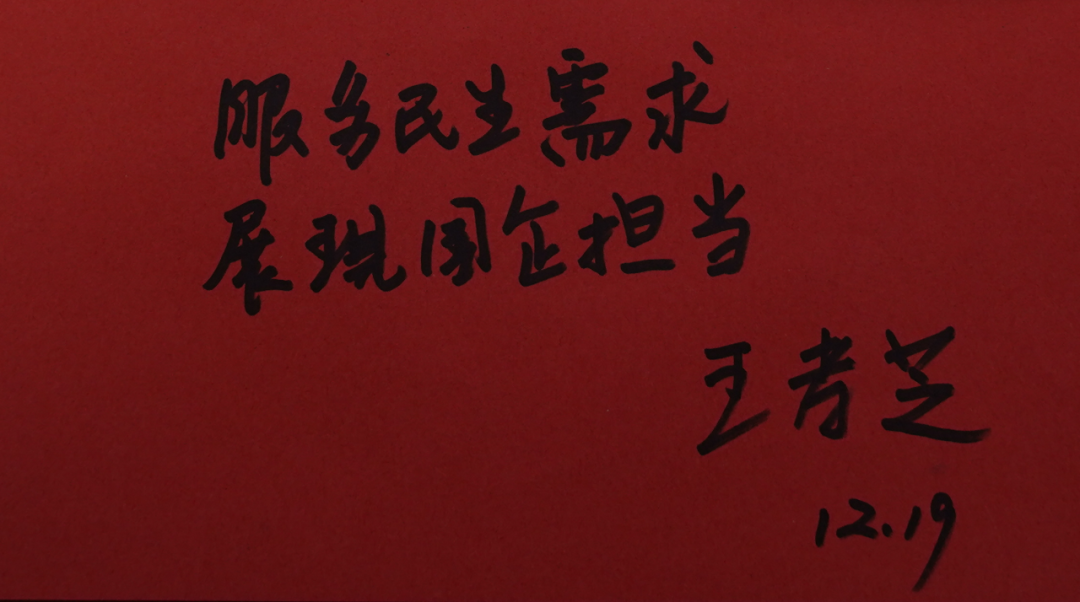 服务民生需求
展现国企担当
王孝芝
12.19